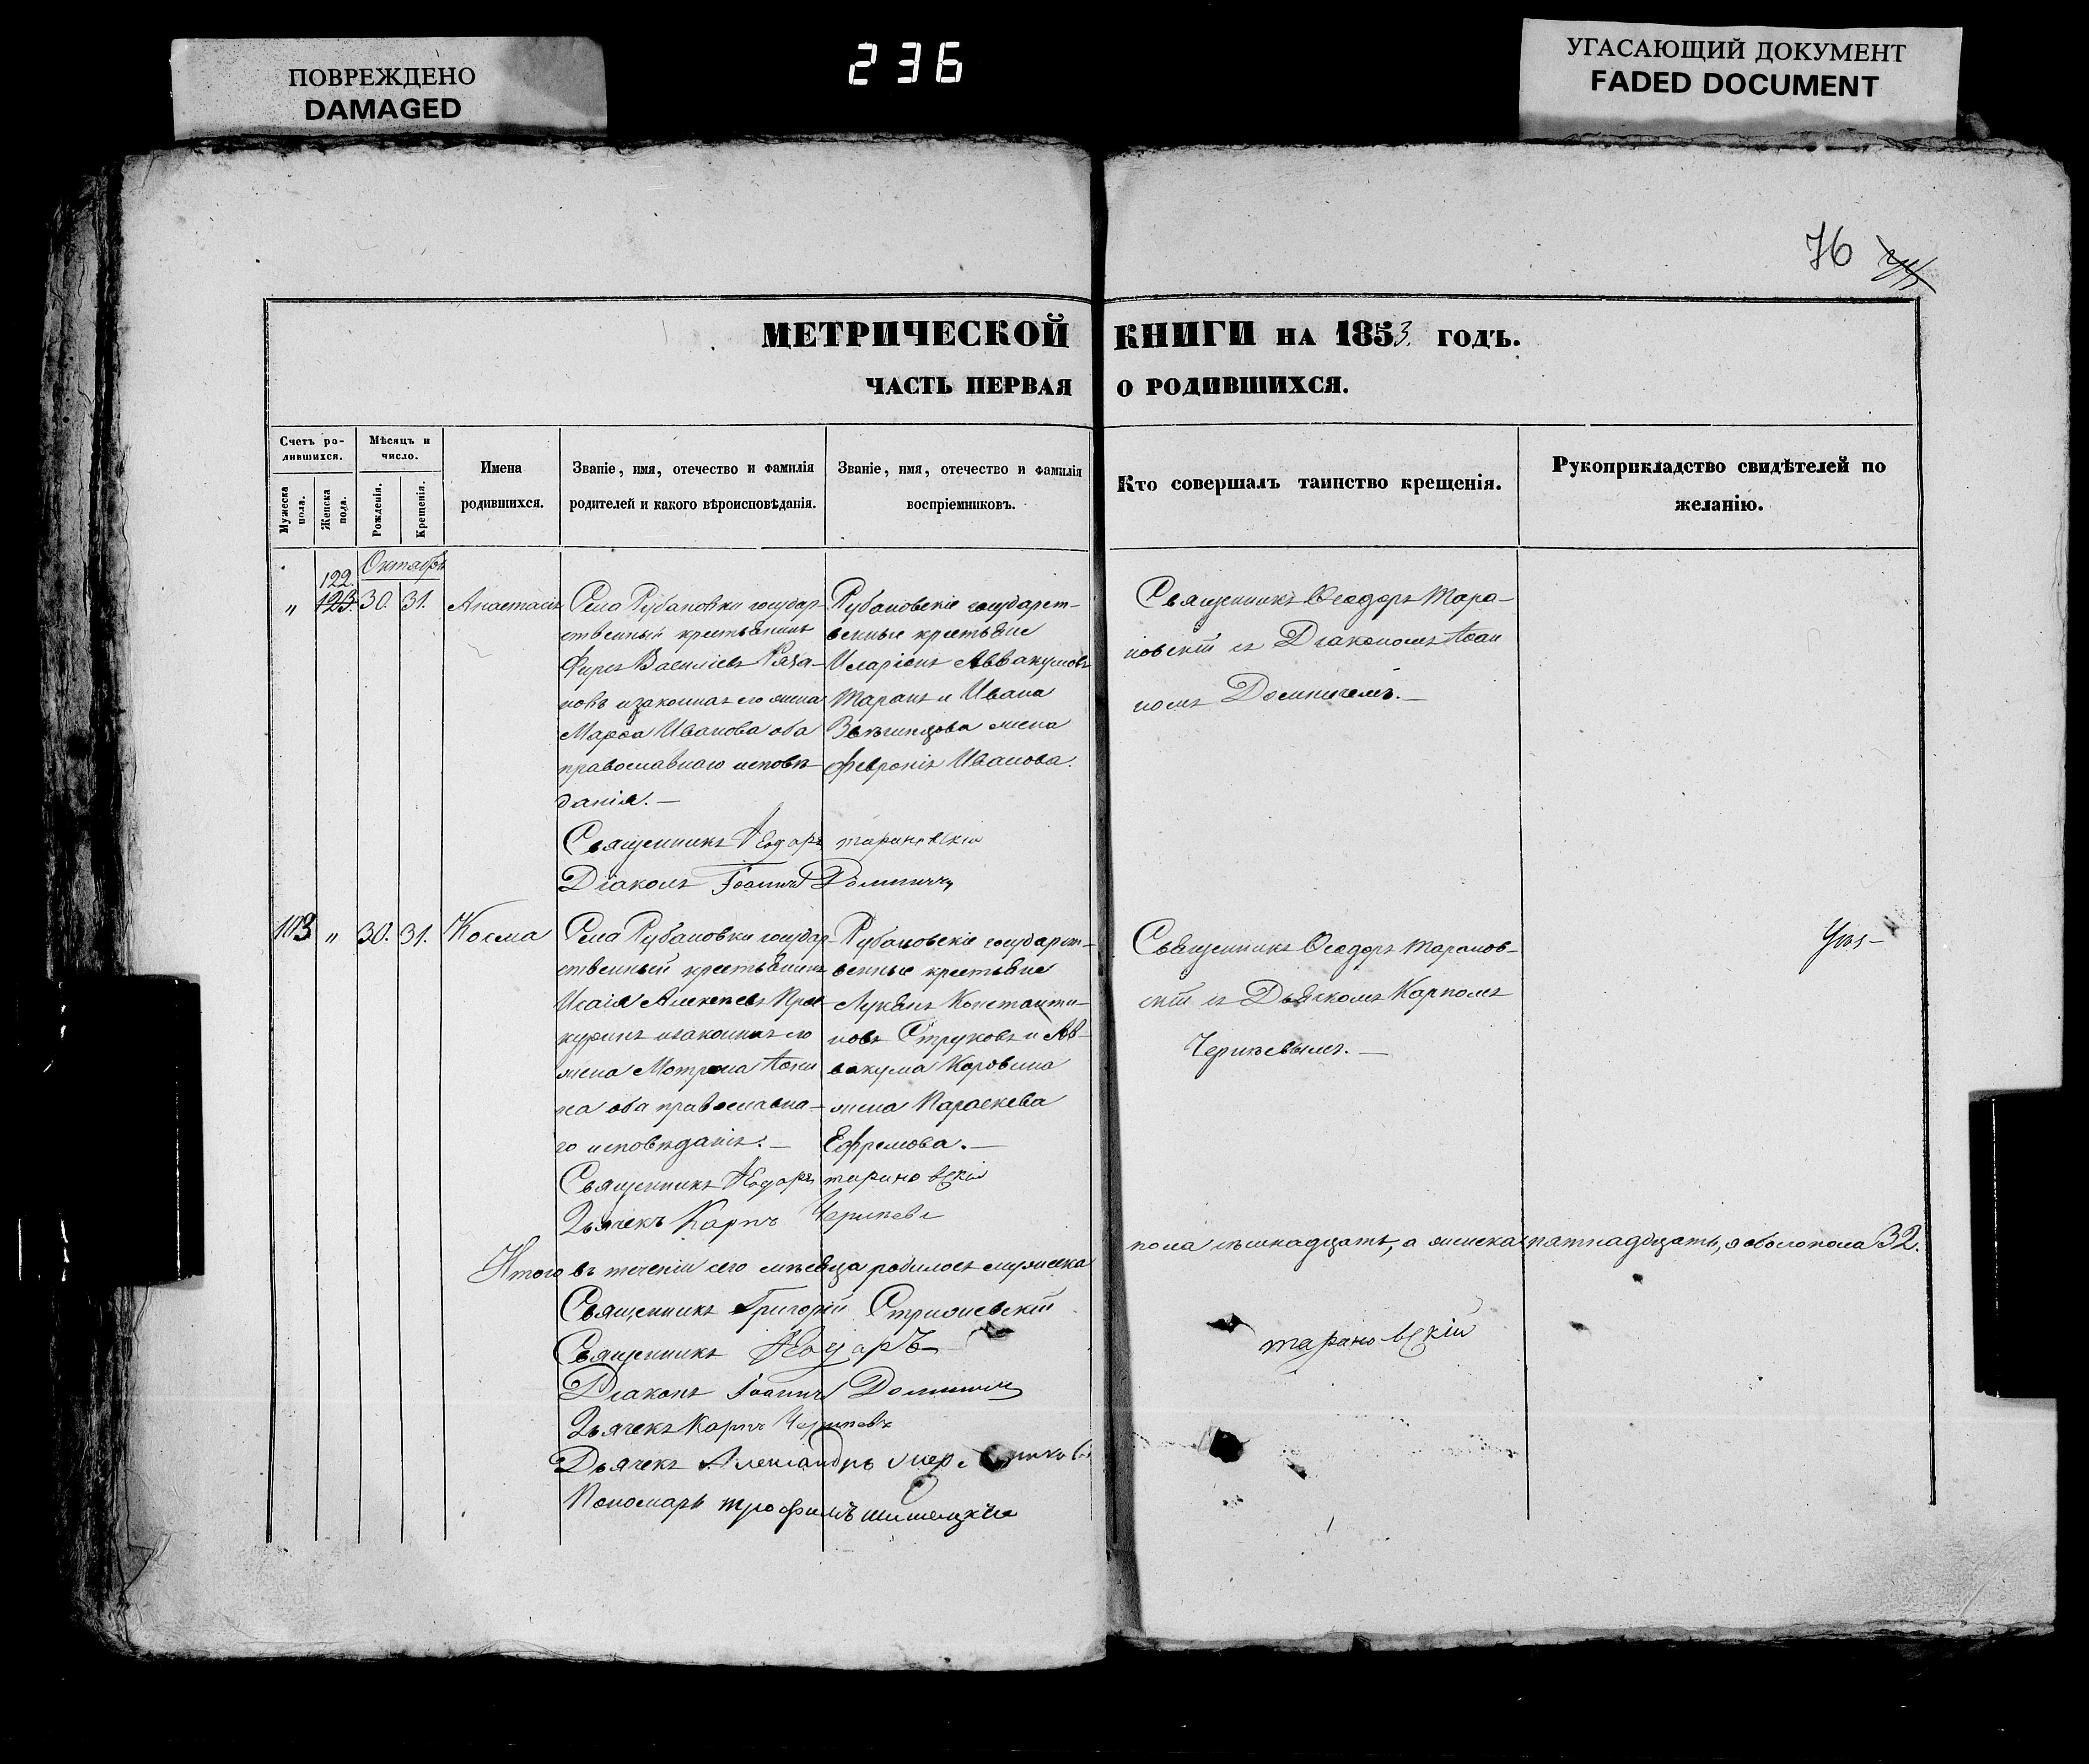 ПОВРЕЖДЕНО
DAMAGED
236
УГАСАЮЩИЙ ДОКУМЕНТ
FADED DOCUMENT
76
МЕТРИЧЕСКОЙ КНИГИ НА 1853. ГОДЪ.
ЧАСТЬ ПЕРВАЯ О РОДИВШИХСЯ.
Счетъ ро-
дившихся.
Мужеска пола.
Женска пола.
Мѣсяцъ и
число.
Рожденія.
Крещенія.
Имена
родившихся.
Званіе, имя, отечество и фамилія
родителей и какого вѣроисповѣданія.
Званіе, имя, отечество и фамилія
воспріемниковъ.
Кто совершалъ таинство крещенія.
Рукоприкладство свидѣтелей по
желанію.
Октябрь
122.
" 123. 30. 31. Анастасія
Села Рубановки государ-
ственный крестьянинъ
Фирсъ Василіевъ
новъ и законная его жена
Марфа Иванова оба
православнаго исповѣ-
данія.—
Рубановскіе государст-
венные крестьяне
Иларіонъ Аввакумовъ
Таранъ и Ивана
жена
Февронія Иванова.
Священникъ Ѳеодоръ Тара-
новскій съ Діакономъ Іоан
номъ Доминичемъ.—
Священникъ Ѳеодоръ Тарановскій
Діаконъ Іоаннъ Доминичъ
103 " 30. 31. Косма
Села Рубановки государ-
ственный крестьянинъ
Исаія Алексѣевъ Про-
куринъ и законная его
жена Мотрона Іоки
на оба православна-
го исповѣданія.—
Рубановскіе государст-
венные крестьяне
Лукьянъ Константи-
новъ Струковъ и Ав-
вакума Коровина
жена Параскева
Ефремова.—
Священникъ Ѳеодоръ Таранов-
скій съ Дьячкомъ Карпомъ
Черняевымъ.—
Священникъ Ѳеодоръ Тарановскій
Дьячекъ Карпъ Черняевъ
Итого въ теченіи сего мѣсяца родилось мужеска
пола семнадцать, а женска пятнадцать, а обоего пола 32.
Священникъ Григорій Стрижевскій
Священникъ Ѳеодоръ Тарановскій
Діаконъ Іоаннъ Доминичъ
Дьячекъ Карпъ Черняевъ
Дьячекъ Александръ
Пономарь Трофимъ